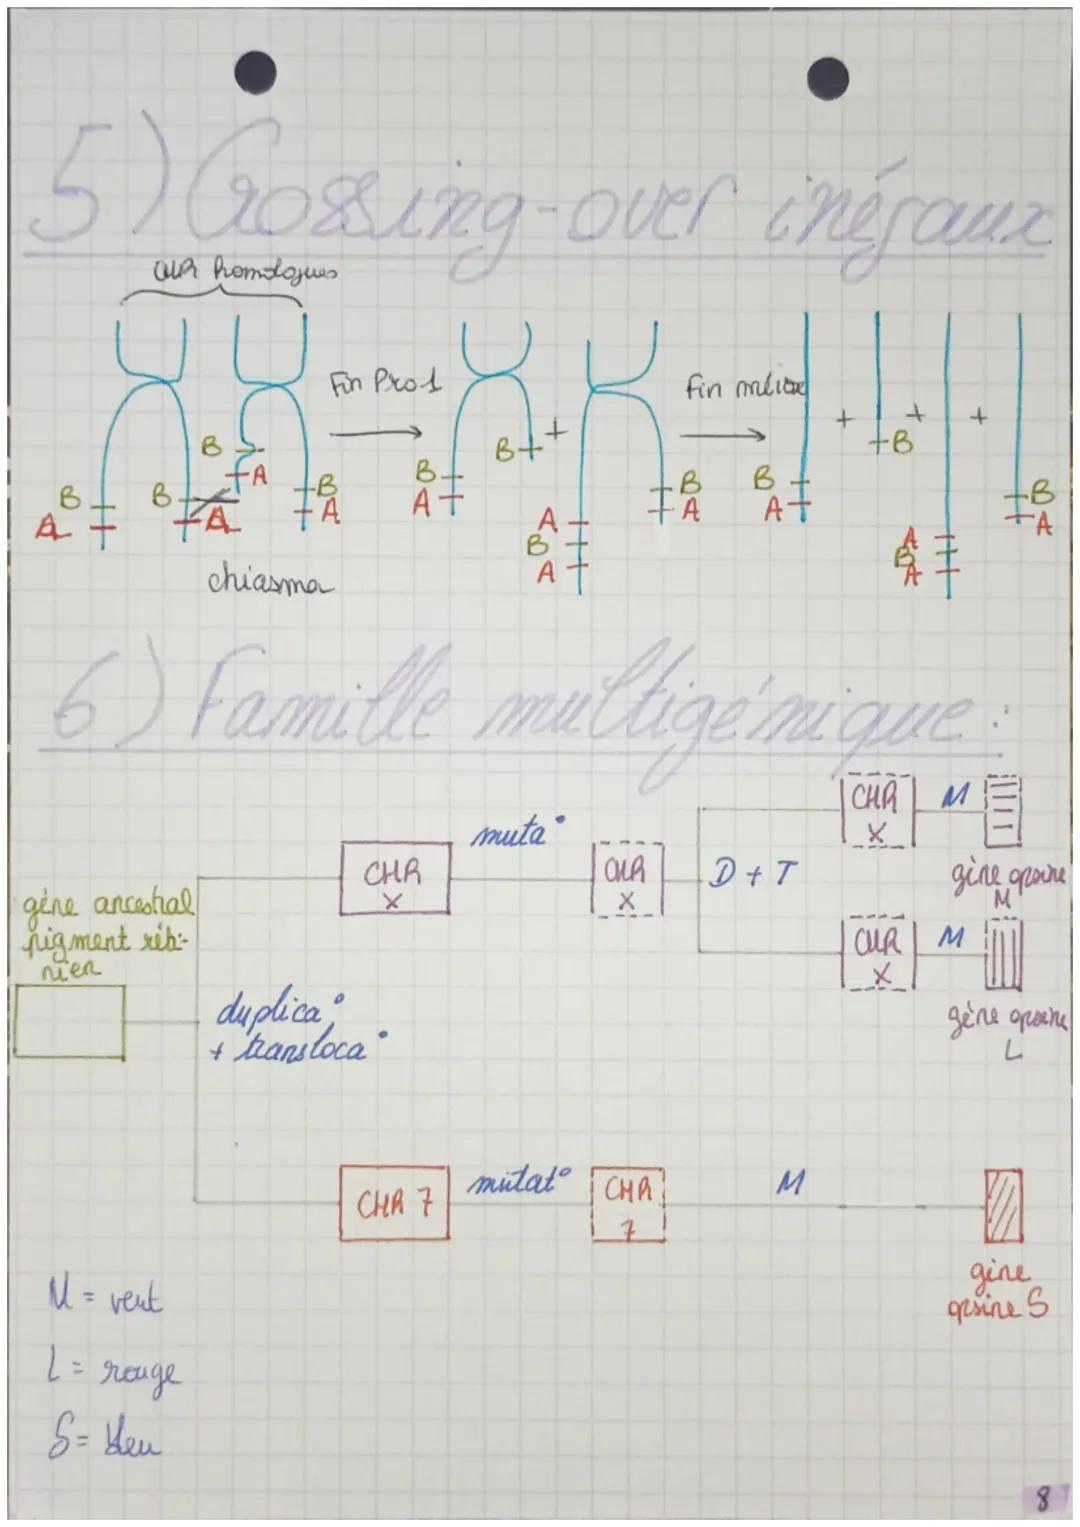 5) Crossing-over inégaux
CHR homologues
Fin Pro 1
Fin méiose
B
A
B
A
B
A
B
A
chiasma
B
A
B
+
A
B
A
B
A
B
A
+
B
+
A
B
A
+
B
A
6) Famille multigénique :
gène ancestral
pigment réti-
nien
duplica°
+ transloca°
CHR
X
muta°
CHR
X
D + T
CHR
X
M
gène opsine
M
CHR
X
M
gène opsine
L
CHR 7
mutat°
CHR
7
M
gène
opsine S
M = vert
L = rouge
S = bleu
8